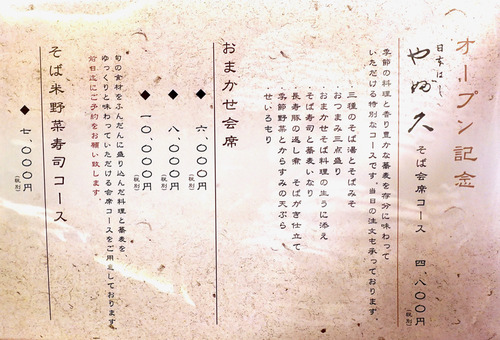 オープン記念
日本ばし
やぶ久 そば会席コース 四、八〇〇円(税別)
季節の料理と香り豊かな蕎麦を存分に味わって
いただける特別なコースです。当日の注文も承っております。
・三種のそば湯とそばみそ
・おつまみ三点盛り
・おまかせそば料理の生うに添え
・そば寿司と蕎麦いなり
・長寿豚の返し煮 そばがき仕立て
・季節野菜とからすみの天ぷら
・せいろもり
おまかせ会席
◆六、〇〇〇円(税別)
◆八、〇〇〇円(税別)
◆一〇、〇〇〇円(税別)
旬の食材をふんだんに盛り込んだ料理と蕎麦を
ゆっくりと味わっていただける会席コースをご用意しております。
前日迄にご予約をお願い致します。
そば米野菜寿司コース
◆七、〇〇〇円(税別)